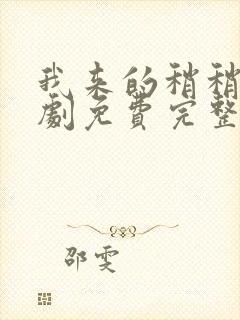 我来的稍稍
劇免费完整
邵雯